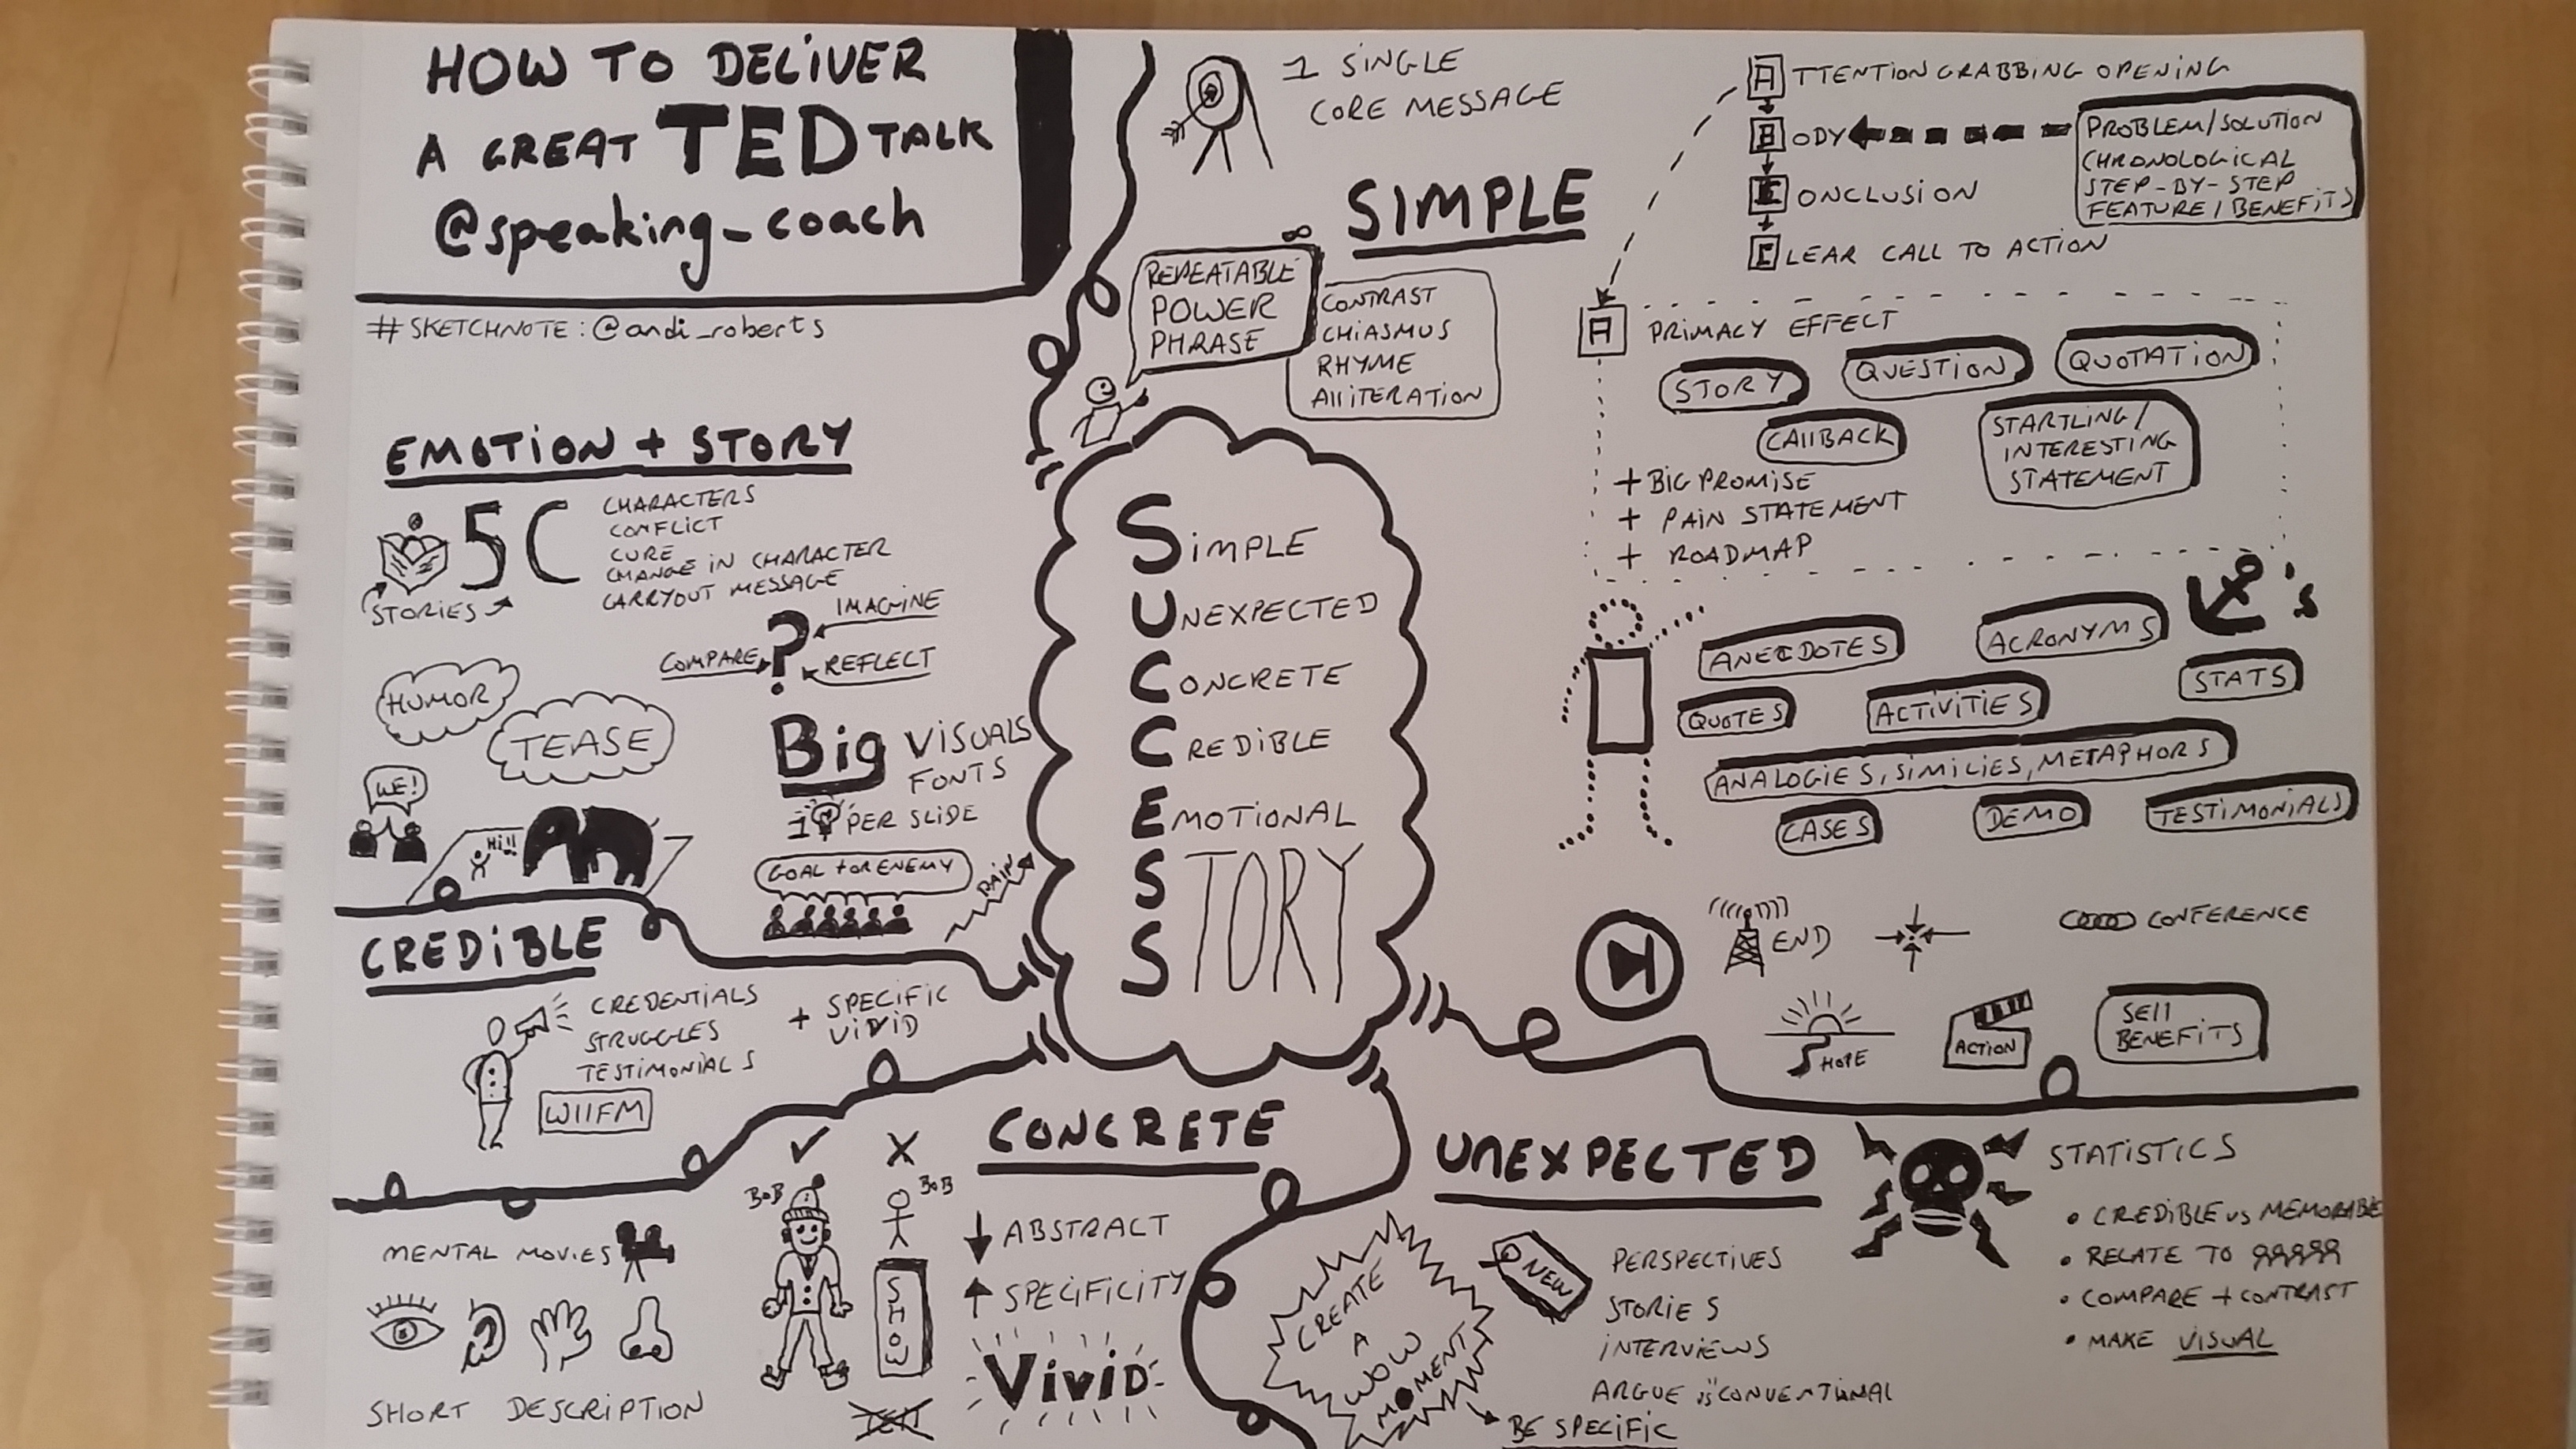 HOW TO DELIVER
A GREAT TED TALK
@speaking_coach
# SKETCHNOTE: @andi_roberts
1 SINGLE
CORE MESSAGE
SIMPLE
REPEATABLE
POWER
PHRASE
CONTRAST
CHIASMUS
RHYME
AlliTERATION
ATTENTION GRABBING OPENING
BODY
CONCLUSION
CLEAR CALL TO ACTION
PROBLEM/SOLUTION
CHRONOLOGICAL
STEP-BY-STEP
FEATURE/BENEFITS
A PRIMACY EFFECT
STORY
QUESTION
QUOTATION
CAllBACK
STARTLING/
INTERESTING
STATEMENT
+ BIG PROMISE
+ PAIN STATEMENT
+ ROADMAP
's
ANECDOTES
ACRONYMS
STATS
QUOTES
ACTIVITIES
ANALOGIES, SIMILIES, METAPHORS
CASES
DEMO
TESTIMONIALS
END
CONFERENCE
HOPE
ACTION
SEll
BENEFITS
EMOTION + STORY
5C
CHARACTERS
CONFLICT
CURE
CHANGE IN CHARACTER
CARRYOUT MESSAGE
STORIES
?
IMAGINE
COMPARE
REFLECT
HUMOR
TEASE
WE!
Hi!!
Big VISUALS
FONTS
1 PER SLIDE
GOAL +OR ENEMY
PAIN
SIMPLE
UNEXPECTED
CONCRETE
CREDIBLE
EMOTIONAL
STORY
S
CREDIBLE
CREDENTIALS
STRUGGLES
TESTIMONIALS
+ SPECIFIC
VIVID
WIIFM
CONCRETE
MENTAL MOVIES
SHORT DESCRIPTION
BOB
BOB
SHOW
TELL
ABSTRACT
SPECIFICITY
ViviD
UNEXPECTED
CREATE
A
WOW
MOMENT
NEW
PERSPECTIVES
STORIES
INTERVIEWS
ARGUE CONVENTIONAL
BE SPECIFIC
STATISTICS
• CREDIBLE VS MEMORABLE
• RELATE TO
• COMPARE + CONTRAST
• MAKE VISUAL